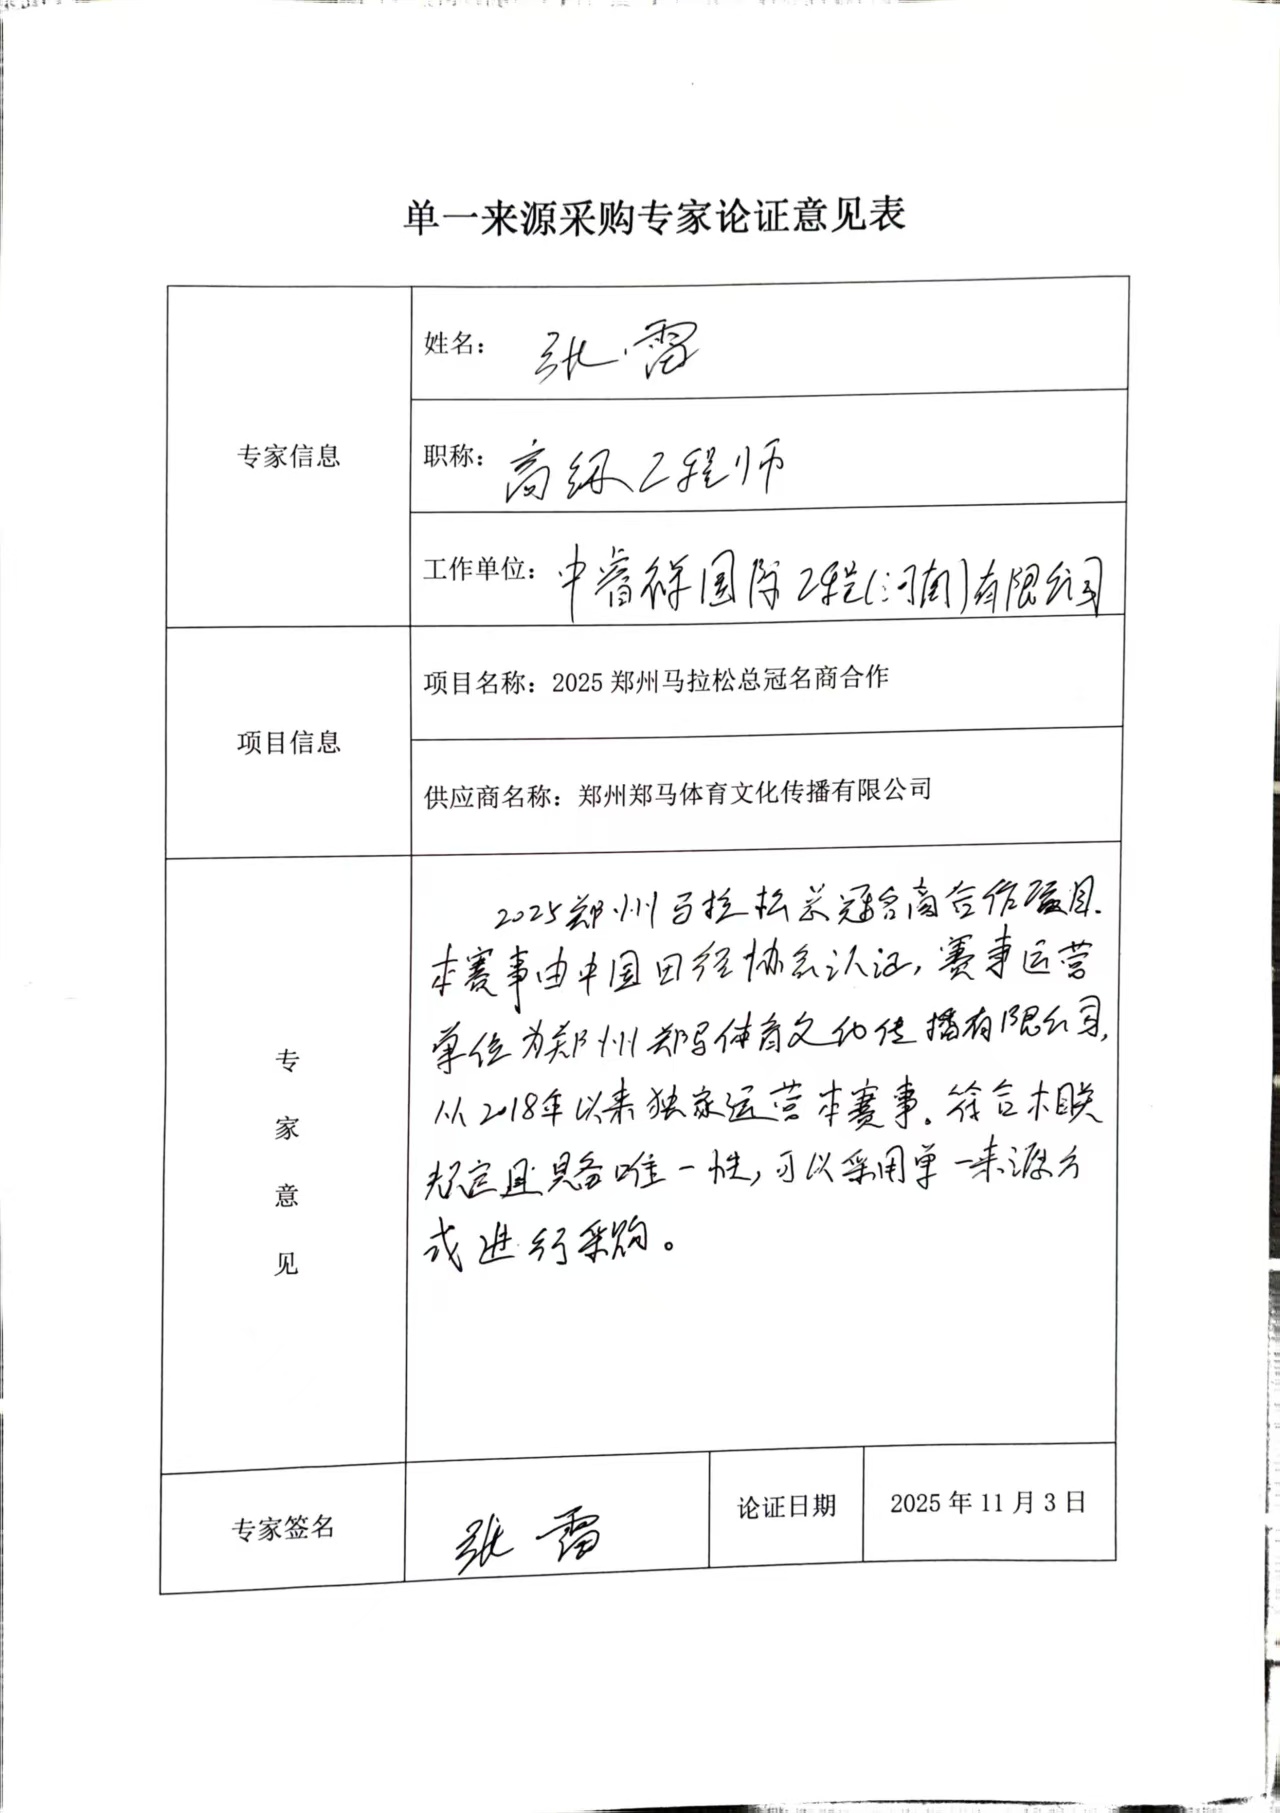 单一来源采购专家论证意见表
专家信息
姓名: 张雷
职称: 高级工程师
工作单位: 中睿祥国际工程(河南)有限公司
项目信息
项目名称: 2025郑州马拉松总冠名商合作
供应商名称: 郑州郑马体育文化传播有限公司
专家意见
2025郑州马拉松总冠名商合作项目.
本赛事由中国田径协会认证,赛事运营
单位为郑州郑马体育文化传播有限公司,
从2018年以来独家运营本赛事。符合相关
规定且具备唯一性,可以采用单一来源方
式进行采购。
专家签名
张雷
论证日期
2025年11月3日